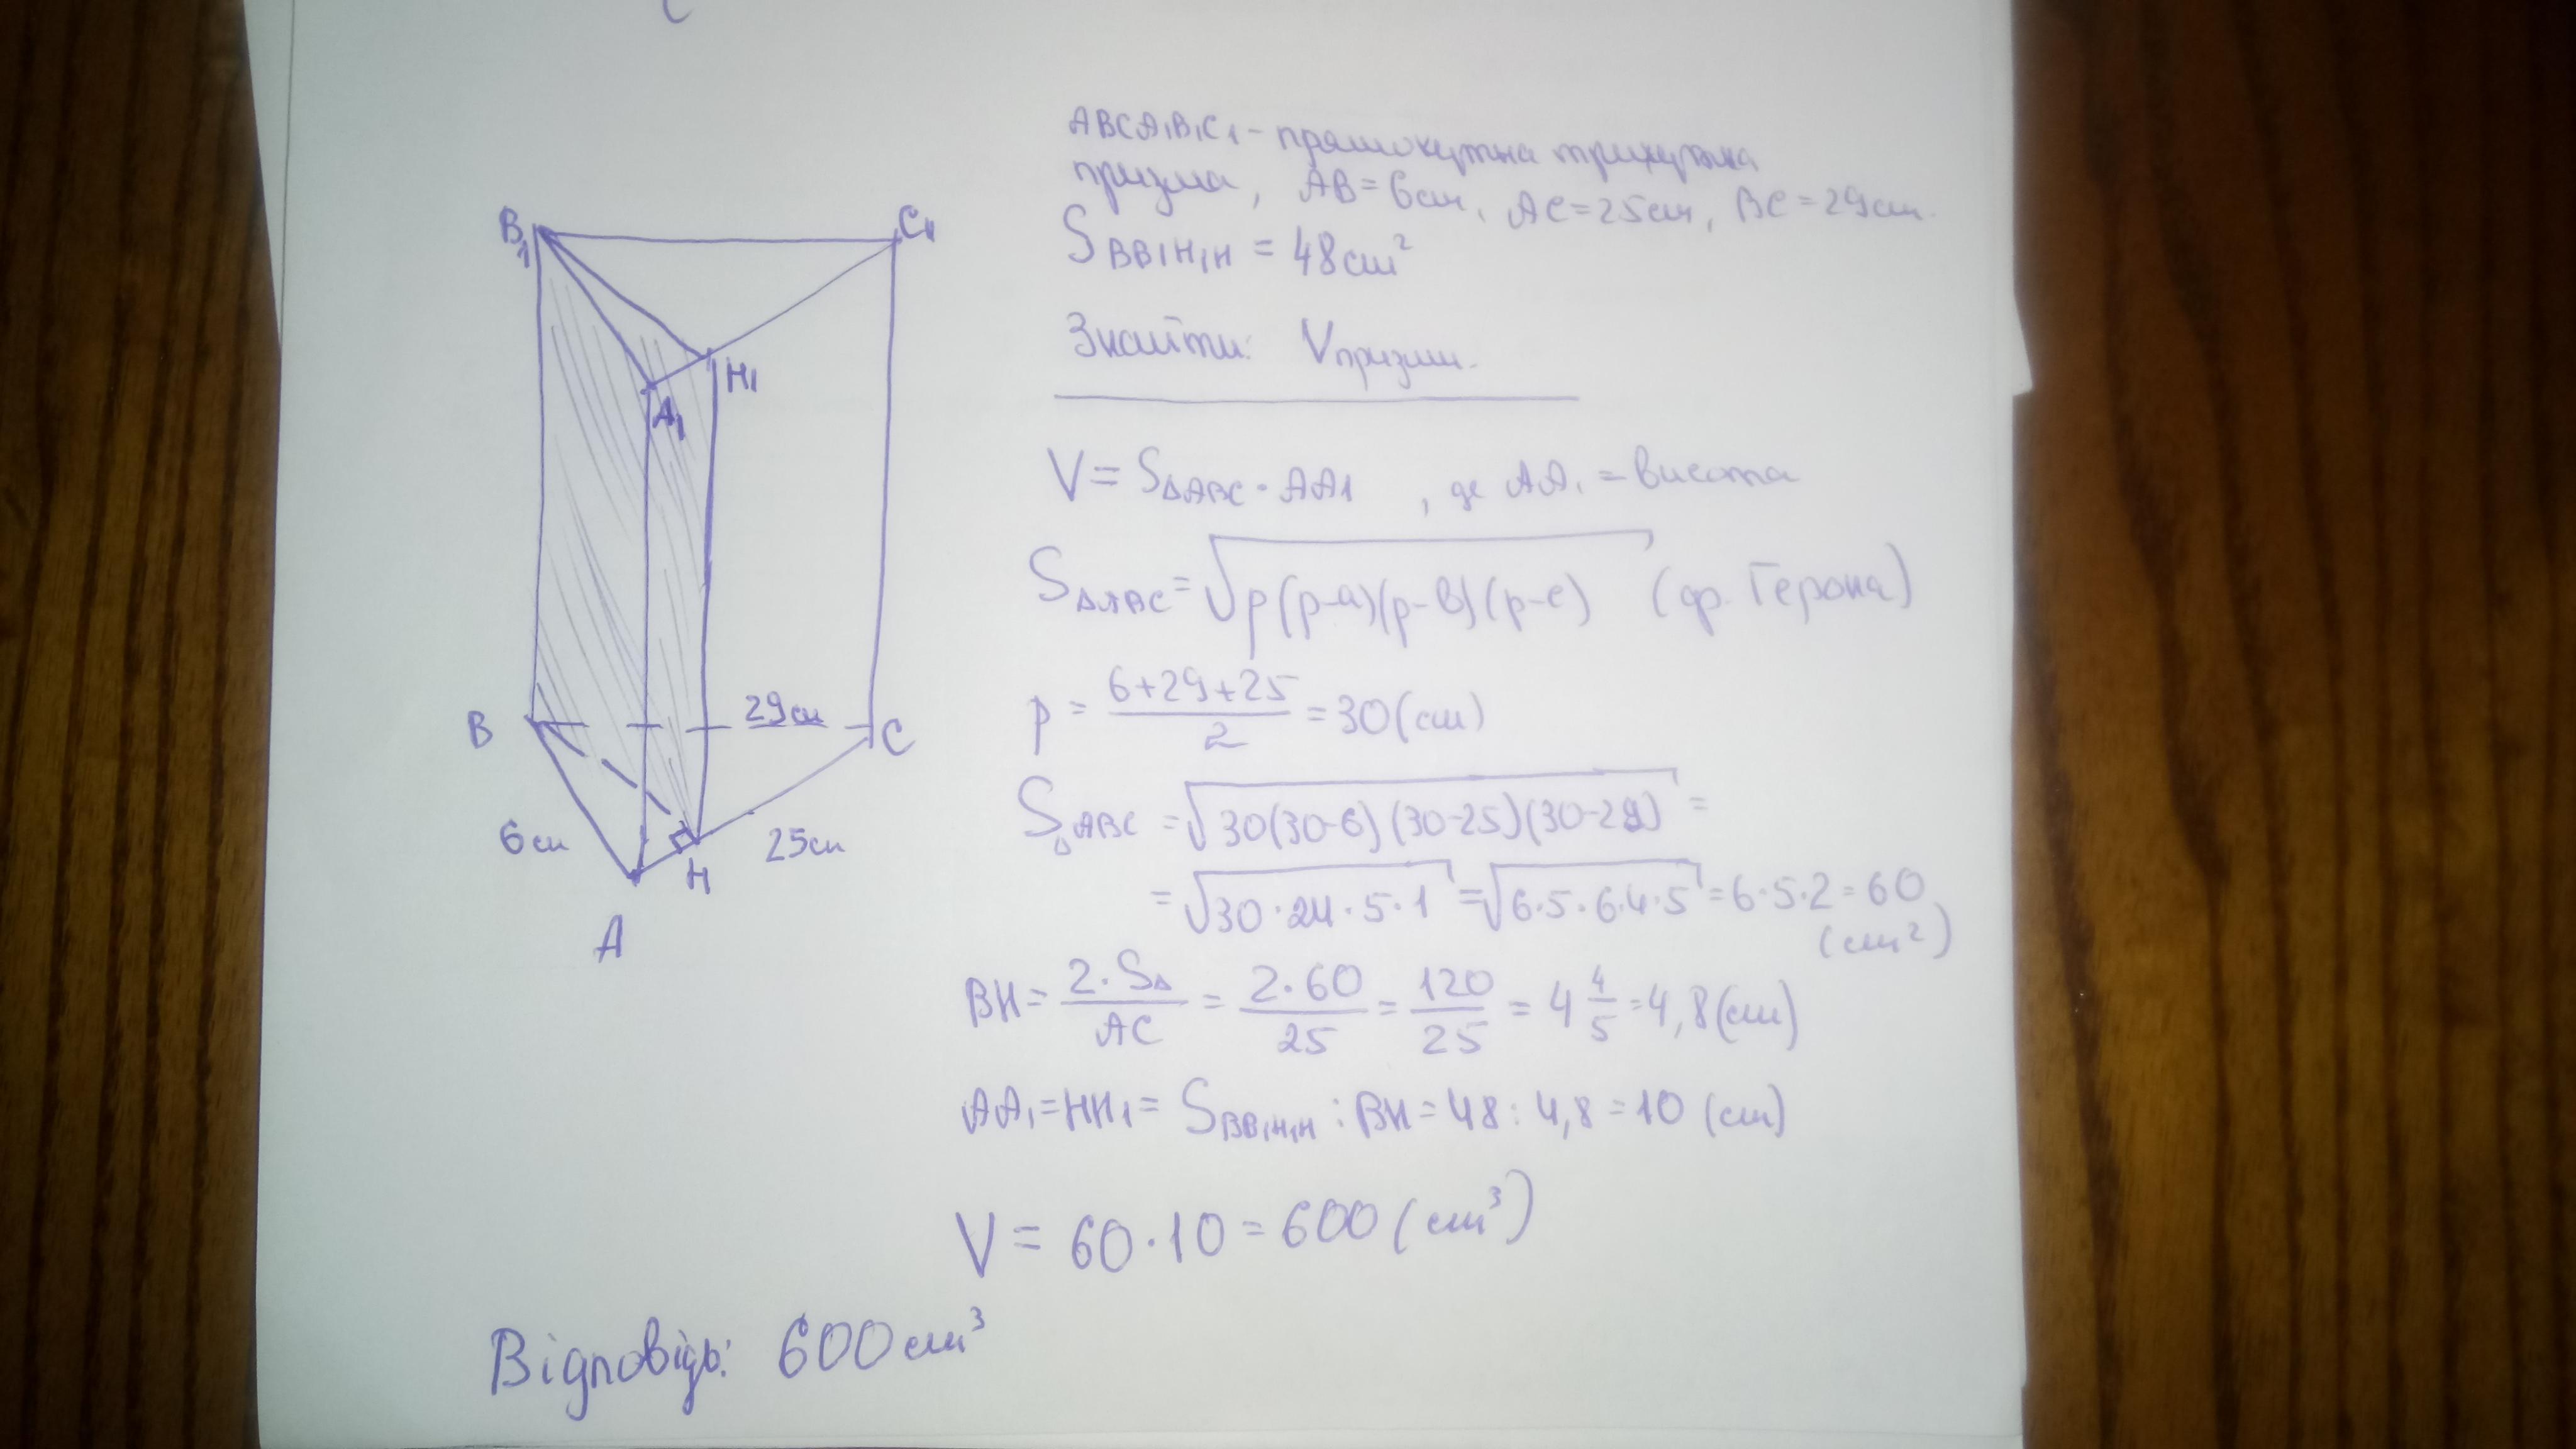 ABCA₁B₁C₁ - прямокутна трикутна
призма, AB = 6см, AC = 25см, BC = 29см.
S BB₁H₁H = 48см²
Знайти: Vпризми.
V = S△ABC · AA1 , де AA₁ = висота
S△ABC = √p(p-a)(p-в)(p-c) (ф. Герона)
p = (6+29+25)/2 = 30 (см)
S△ABC = √30(30-6)(30-25)(30-29) =
= √30·24·5·1 = √6·5·6·4·5 = 6·5·2 = 60
(см²)
BH = 2·S△/AC = 2·60/25 = 120/25 = 4 4/5 = 4,8 (см)
AA₁ = HH₁ = S BB₁H₁H : BH = 48 : 4,8 = 10 (см)
V = 60·10 = 600 (см³)
Відповідь: 600 см³
B₁
C₁
H₁
A₁
B
29см
C
6см
25см
H
A